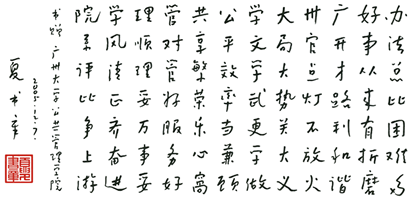 办法总比困难多
好事从来有折磨
广开才路利和谐
州官点灯不放火
大局大势关大义
学文学武更学做
公平效率当兼顾
共享繁荣乐心窝
管对管好服务好
理顺理妥万事妥
学风清正齐奋进
院系评比争上游
书赠 广州大学公共管理学院
2005.12.7.
夏书章